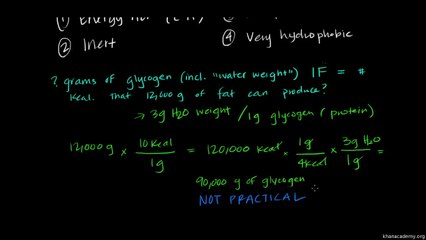 ② Inert
④ Very hydrophobic
? grams of glycogen (incl. "water weight") IF = #
kcal. that 12,000 g of fat can produce?
→ 3g H2O weight / 1g glycogen (protein)
12,000 g × 10 kcal / 1g = 120,000 kcal × 1g / 4 kcal × 3g H2O / 1g =
90,000 g of glycogen
NOT PRACTICAL
khanacademy.org